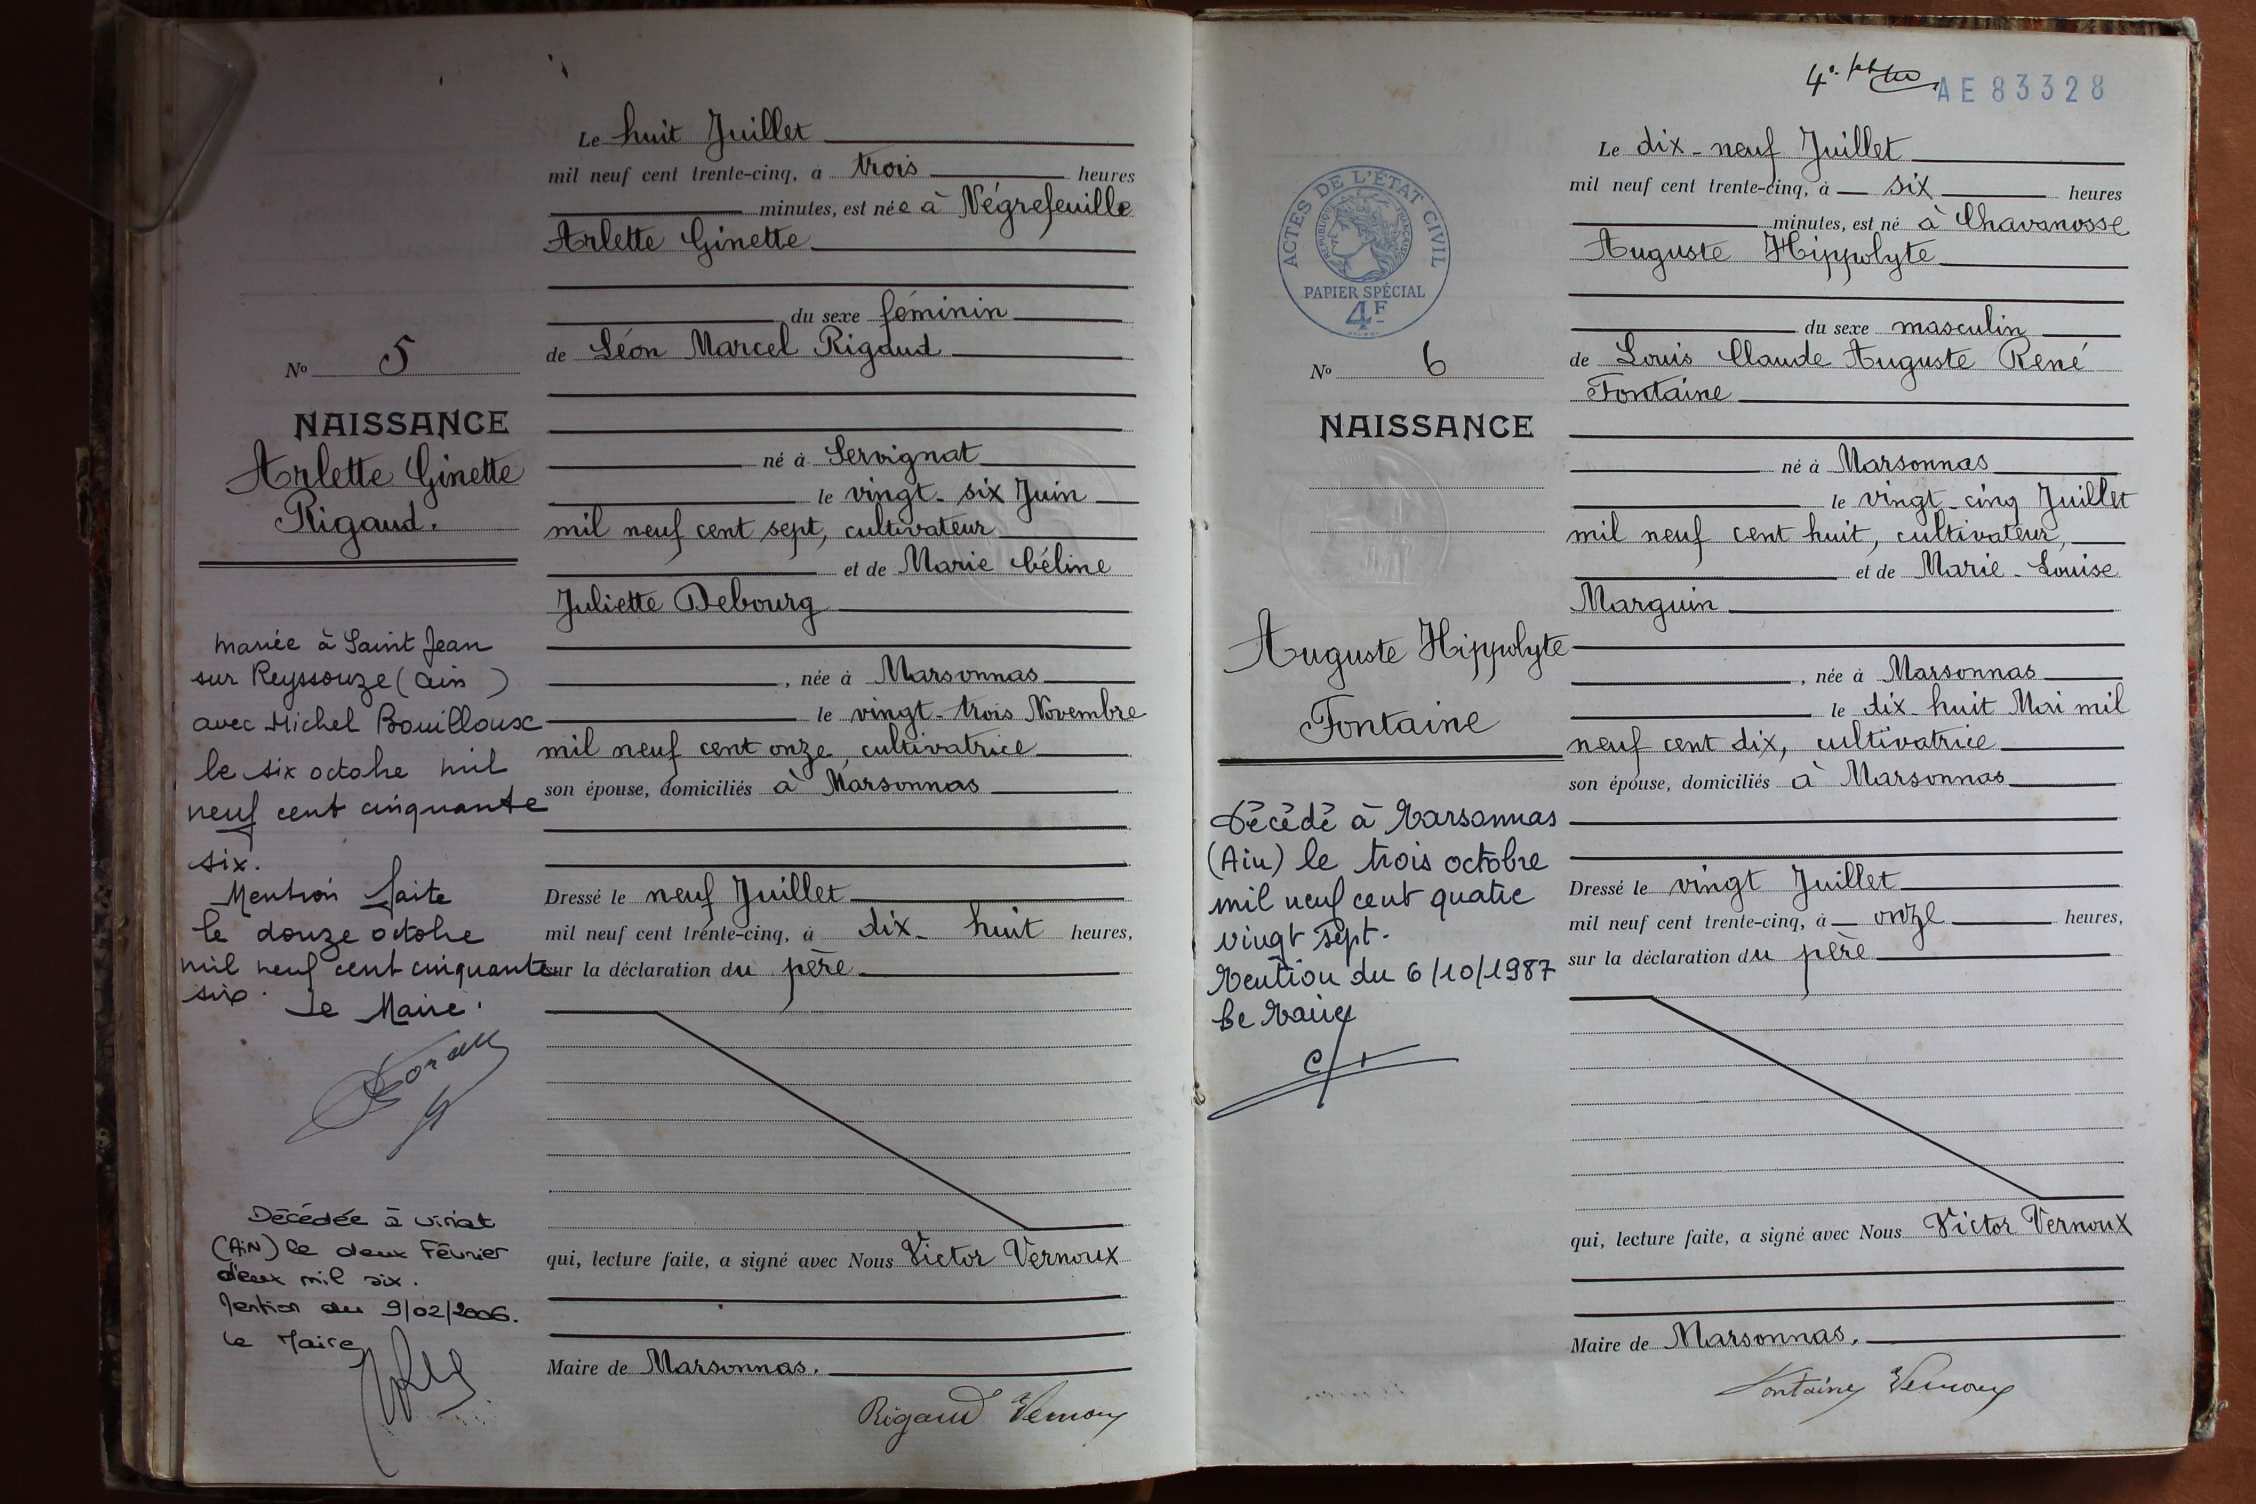 Le huit Juillet
mil neuf cent trente-cinq, à trois heures
minutes, est née à Négrefeuille
Arlette Ginette
du sexe féminin
de Léon Marcel Rigaud
né à Servignat
le vingt-six Juin
mil neuf cent sept, cultivateur
et de Marie Céline
Juliette Debourg
, née à Marsonnas
le vingt-trois Novembre
mil neuf cent onze, cultivatrice
son épouse, domiciliés à Marsonnas
Dressé le neuf Juillet
mil neuf cent trente-cinq, à dix-huit heures,
sur la déclaration du père
qui, lecture faite, a signé avec Nous Victor Vernoux
Maire de Marsonnas.
Rigaud Vernoux
No 5
NAISSANCE
Arlette Ginette
Rigaud.
mariée à Saint Jean
sur Reyssouze (Ain)
avec Michel Bouilloux
le six octobre mil
neuf cent cinquante
six.
Mention faite
le douze octobre
mil neuf cent cinquante
six.
Le Maire.
Décédée à Viriat
(AiN) le deux Février
deux mil six.
Mention du 9/02/2006.
Le Maire
AE83328
Le dix-neuf Juillet
mil neuf cent trente-cinq, à six heures
minutes, est né à Chavanosse
Auguste Hippolyte
du sexe masculin
de Louis Claude Auguste René
Fontaine
né à Marsonnas
le vingt-cinq Juillet
mil neuf cent huit, cultivateur,
et de Marie-Louise
Marguin
, née à Marsonnas
le dix-huit Mai mil
neuf cent dix, cultivatrice
son épouse, domiciliés à Marsonnas
Dressé le vingt Juillet
mil neuf cent trente-cinq, à onze heures,
sur la déclaration du père
qui, lecture faite, a signé avec Nous Victor Vernoux
Maire de Marsonnas.
Fontaine Vernoux
ACTES DE L'ÉTAT CIVIL
RÉPUBLIQUE FRANÇAISE
PAPIER SPÉCIAL
4F
No 6
NAISSANCE
Auguste Hippolyte
Fontaine
Décédé à Marsonnas
(Ain) le trois octobre
mil neuf cent quatre
vingt sept.
Mention du 6/10/1987
Le Maire